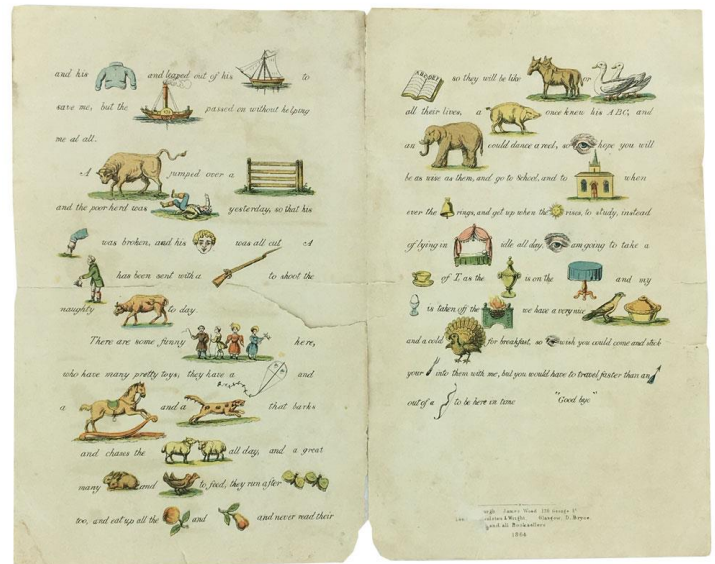 and his and leaped out of his to
save me, but the passed on without helping
me at all.
A jumped over a
and the poor herd was yesterday, so that his
was broken, and his was all cut A
has been sent with a to shoot the
naughty to day.
There are some funny here,
who have many pretty toys; they have a and
a and a that barks
and chases the all day, and a great
many and to feed; they run after
too, and eat up all the and and never read their
ABCDEF so they will be like or
all their lives, a once knew his ABC, and
an could dance a reel, so hope you will
be as wise as them, and go to School, and to when
ever the rings, and get up when the rises, to study, instead
of lying in idle all day. am going to take a
of T. as the is on the and my
is taken off the we have a very nice
and a cold for breakfast, so wish you could come and stick
your into them with me, but you would have to travel faster than an
out of a to be here in time "Good bye"
James Wood 130 George St
& Wright. Glasgow, D. Bryce.
and all Booksellers